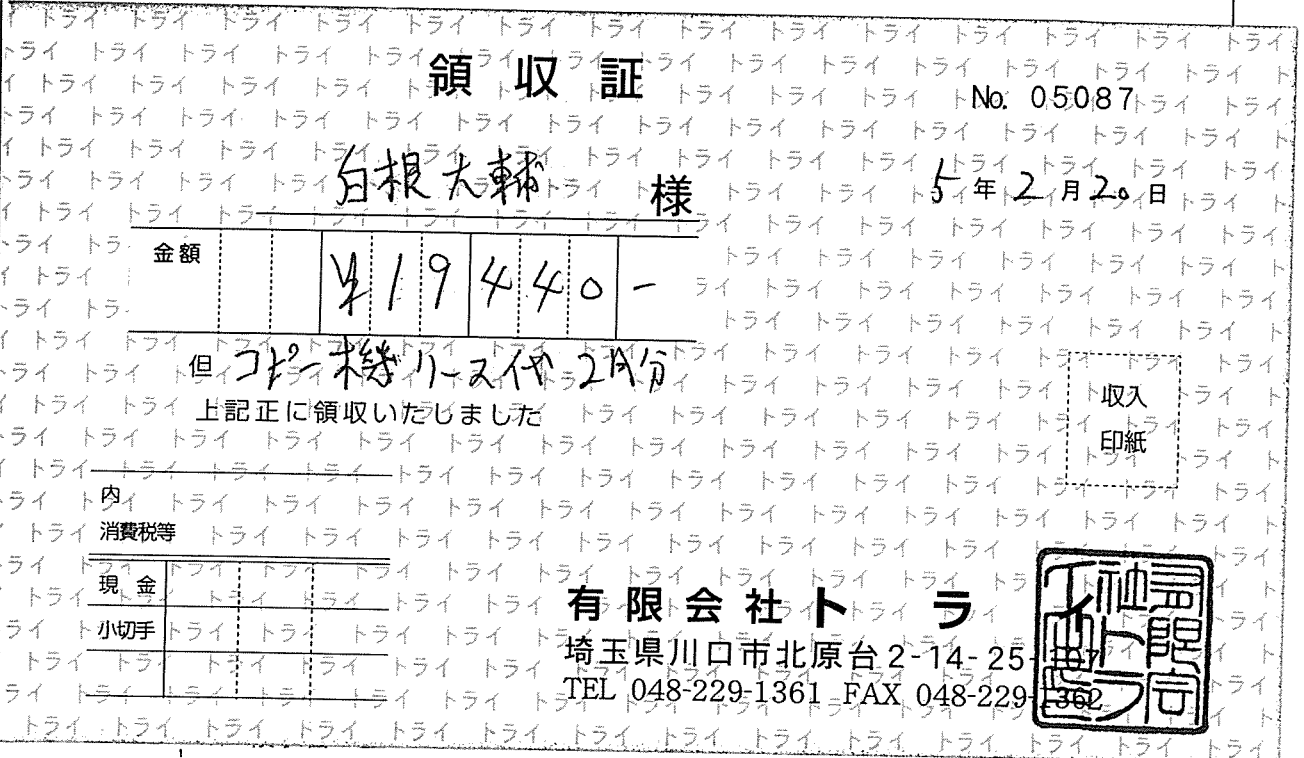 領収証
No. 05087
白根大輔 様
5年2月20日
金額 ¥19440-
但 コピー機リース代 2月分
上記正に領収いたしました
収入
印紙
内
消費税等
現金
小切手
有限会社トライ
埼玉県川口市北原台2-14-25-107
TEL 048-229-1361 FAX 048-229-1362